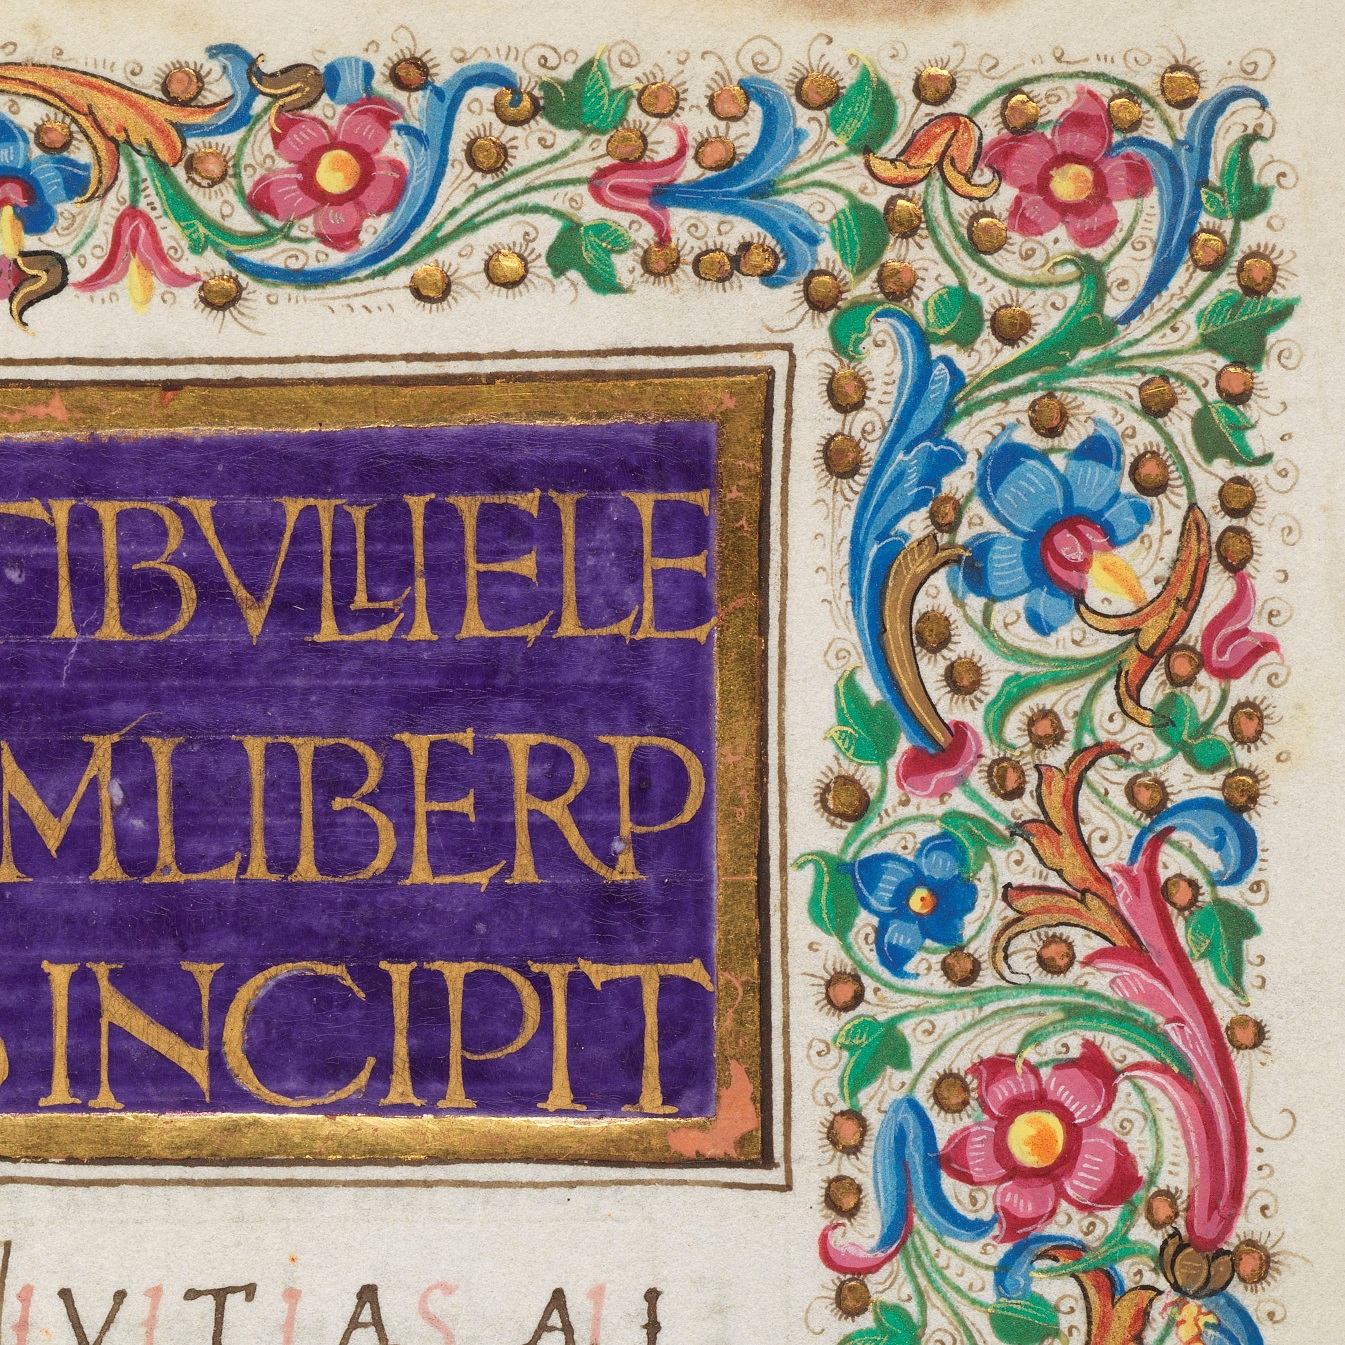 TIBVLLIELE
MLIBERP
SINCIPIT
IVITIAS ALI